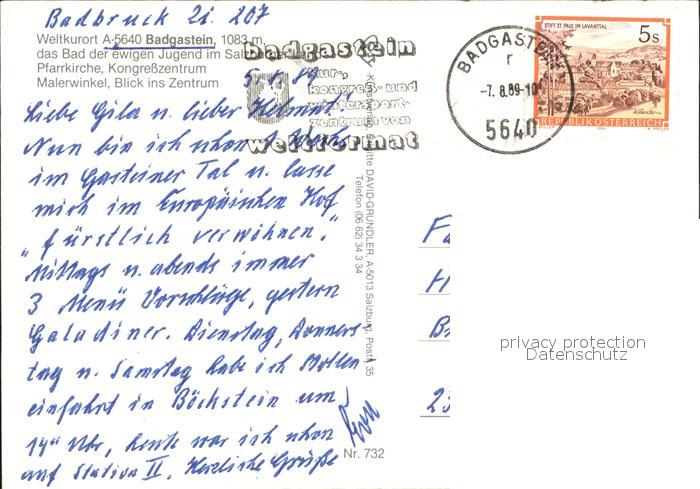 Badbruck Zi. 207
Weltkurort A-5640 Badgastein, 1083 m,
das Bad der ewigen Jugend im Salzb
Pfarrkirche, Kongreßzentrum
Malerwinkel, Blick ins Zentrum
5.8.89
Liebe Gila u. lieber Helmut,
Nun bin ich schon
im Gasteiner Tal u. lasse
mich im Europäischen Hof
"fürstlich verwöhnen."
Mittags u. abends immer
3 Menü Vorschläge, gestern
Galadiner. Dienstag, Donners-
tag u. Samstag habe ich Stollen-
einfahrt in Böckstein um
14°° Uhr, heute war ich schon
auf Station II. Herzliche Grüße
badgastein
kur-,
kongreß- und
wintersport-
zentrum von
weltformat
BADGASTEIN
r
-7. 8.89-10
5640
STIFT ST. PAUL IM LAVANTTAL
5s
REPUBLIK ÖSTERREICH
Kunstverlag Brigitte DAVID-GRÜNDLER, A-5013 Salzburg, Postf. 35
Telefon (06 62) 34 3 34
Nr. 732
Fa
H
B
23
privacy protection
Datenschutz